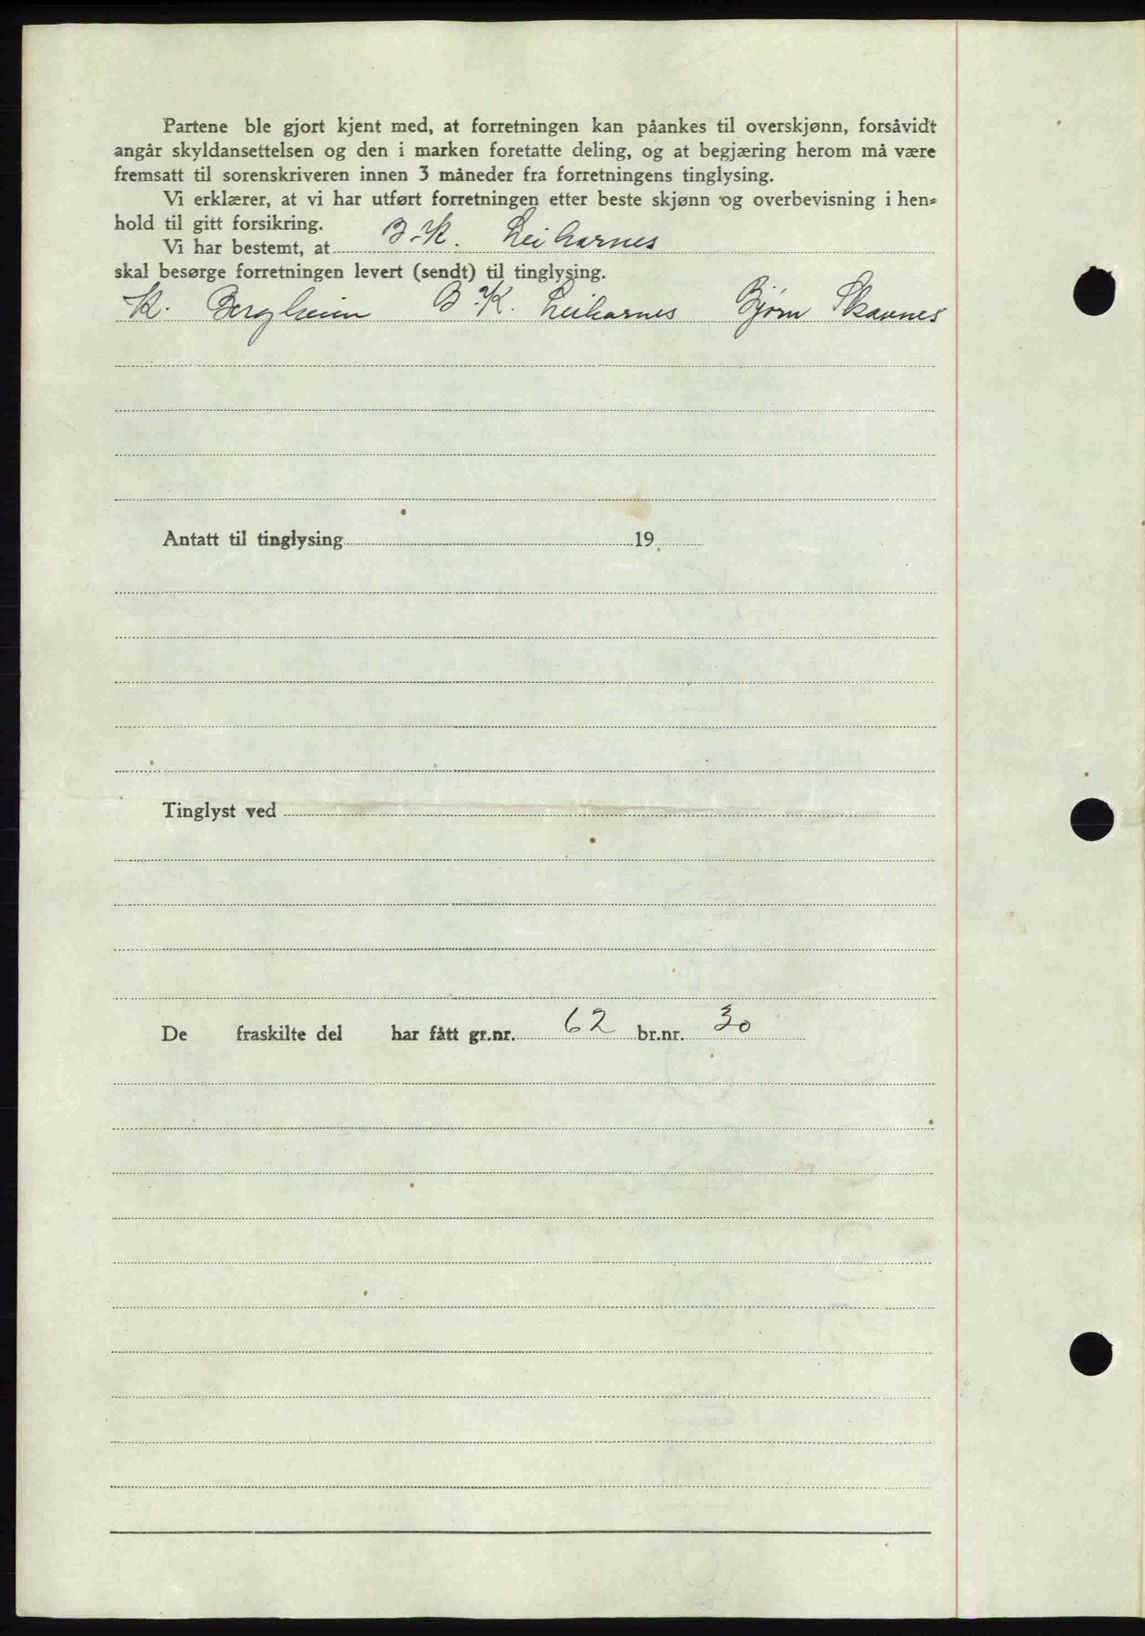 Partene ble gjort kjent med, at forretningen kan påankes til overskjønn, forsåvidt
angår skyldansettelsen og den i marken foretatte deling, og at begjæring herom må være
fremsatt til sorenskriveren innen 3 måneder fra forretningens tinglysing.
Vi erklærer, at vi har utført forretningen etter beste skjønn og overbevisning i hen=
hold til gitt forsikring.
Vi har bestemt, at B.K. Leikarnes
skal besørge forretningen levert (sendt) til tinglysing.
K. Bergheim B.K. Leikarnes Bjørn Skavnes
Antatt til tinglysing 19
Tinglyst ved
De fraskilte del har fått gr.nr. 62 br.nr. 30